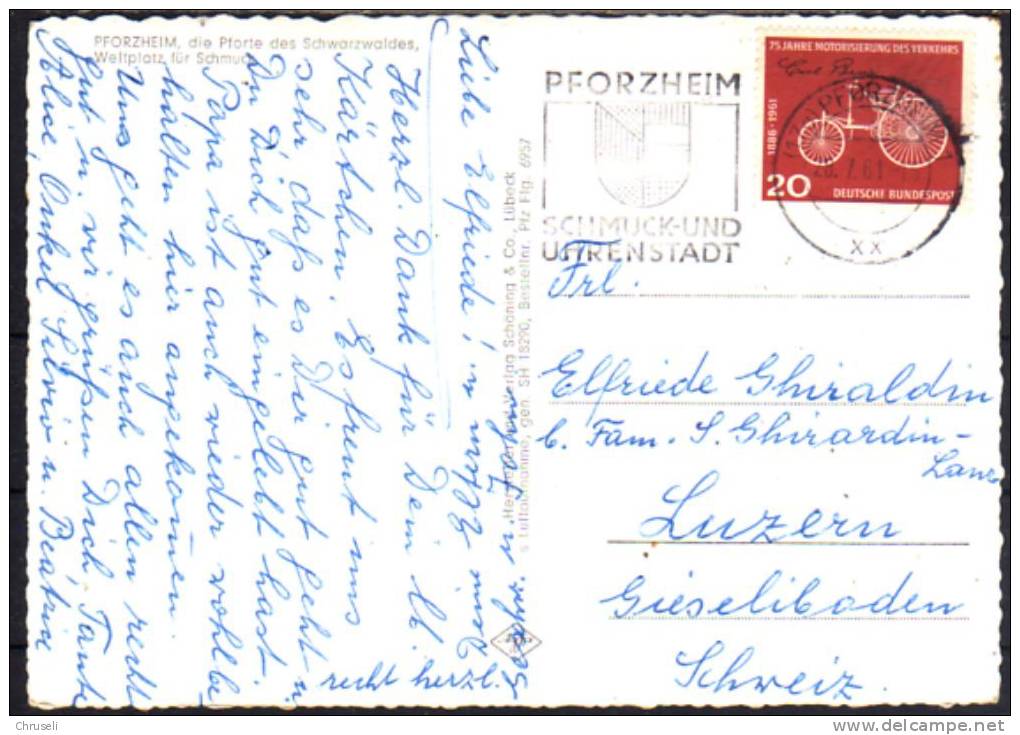 PFORZHEIM, die Pforte des Schwarzwaldes,
Weltplatz für Schmuck
Liebe Elfriede!
Herzl. Dank für Dein lb.
Kärtchen. Es freut uns
sehr dass es Dir gut geht u.
Du Dich gut eingelebt hast.
Papa ist auch wieder wohlbe
halten hier angekommen.
Uns geht es auch allen recht
gut u. wir grüßen Dich, Tante
Alice, Onkel Silvio u. Beatrice
recht herzl.
Hersteller und Verlag Schöning & Co., Lübeck
s Luftaufnahme, gen. SH 18290, Bestellnr. Pfz Flg. 6957
PFORZHEIM
SCHMUCK-UND
UHRENSTADT
75 JAHRE MOTORISIERUNG DES VERKEHRS
1886-1961
20
DEUTSCHE BUNDESPOST
PFORZHEIM
7.61
xx
Frl.
Elfriede Ghiraldin
b. Fam. S. Ghirardin-
Luzern
Gieseliboden
Schweiz.
Chruseli
www.delcampe.net